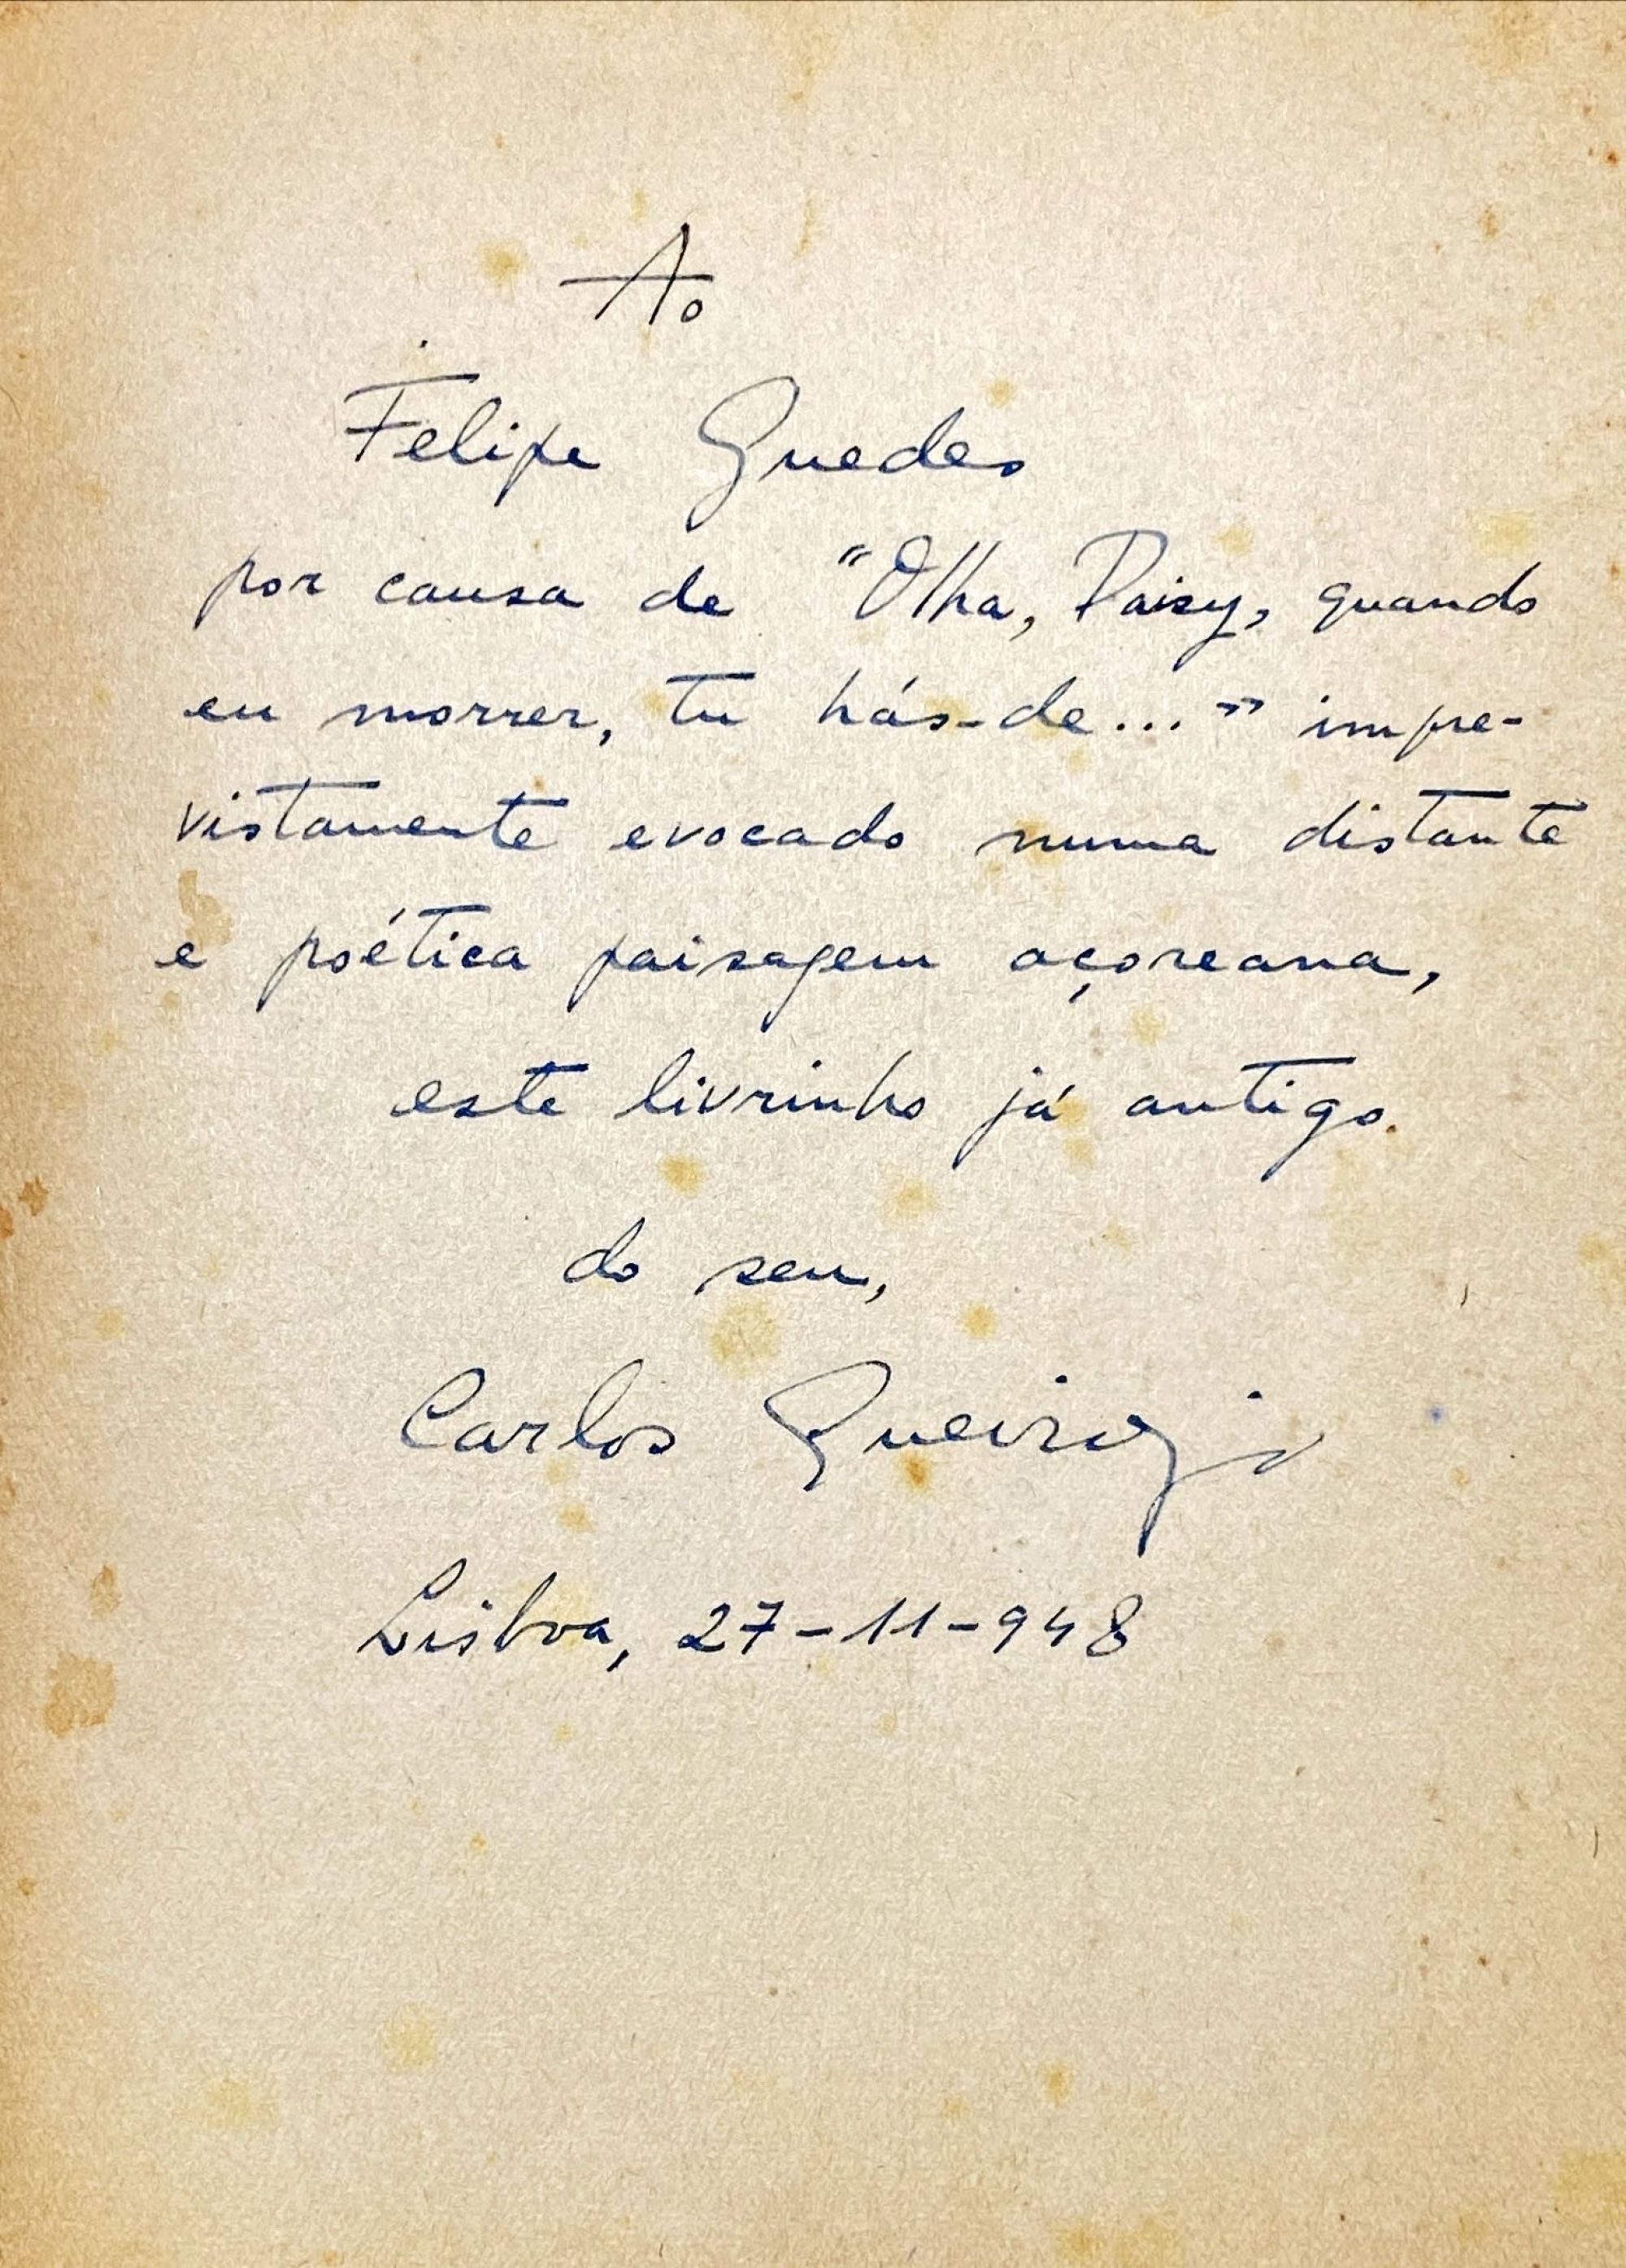 Ao
Felipe Guedes
por causa de "Olha, Daisy, quando
eu morrer, tu hás-de..." impre-
vistamente evocado numa distante
e poética paisagem açoreana,
este livrinho já antigo.
do seu,
Carlos Queiroz
Lisboa, 27-11-948